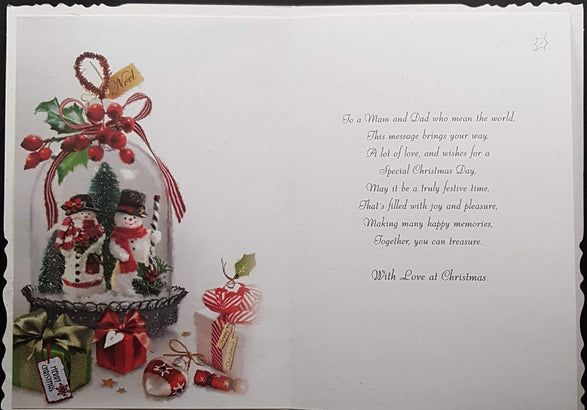 Noel
MERRY
CHRISTMAS
To a Mam and Dad who mean the world,
This message brings your way,
A lot of love, and wishes for a
Special Christmas Day,
May it be a truly festive time,
That's filled with joy and pleasure,
Making many happy memories,
Together, you can treasure.
With Love at Christmas